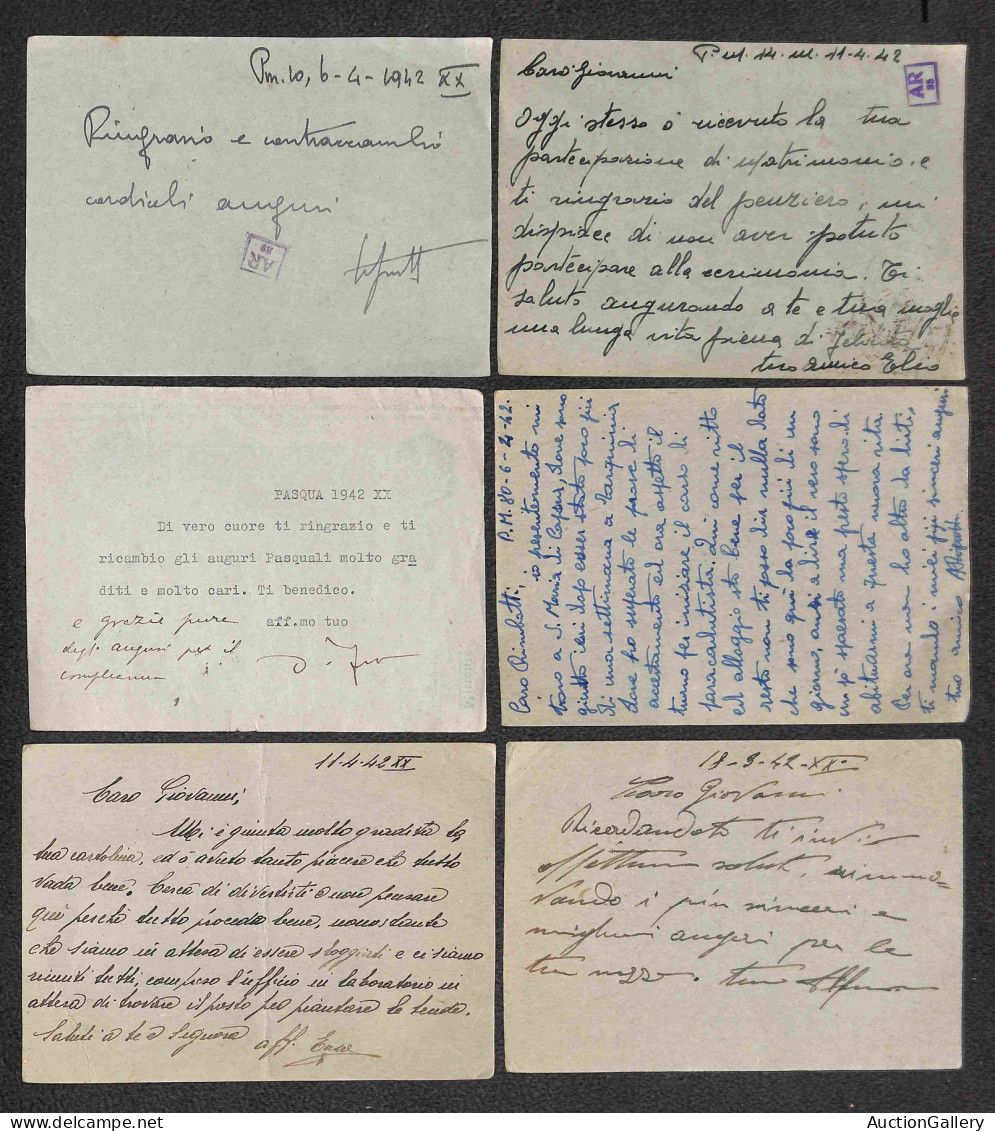 Pm. 10, 6-4-1942 XX
Ringrazio e contraccambio
cordiali auguri
AR
P.M. 14. M. 11-4-42
Caro Giovanni
AR
Oggi stesso ò ricevuto la tua
partecipazione di matrimonio. e
ti ringrazio del penziero, mi
dispiace di non aver potuto
partecipare alla cerimonia. Ti
saluto augurando a te e tua moglie
una lunga vita piena di felicità
tuo amico Elio
PASQUA 1942 XX
Di vero cuore ti ringrazio e ti
ricambio gli auguri Pasquali molto gra
diti e molto cari. Ti benedico.
aff.mo tuo
e grazie pure
degli auguri per il
compleanno
P.M. 80-6-4-42.
Caro io presentemente mi
trovo a S. Maria di Capua, dove sono
giunto ieri dopo esser stato poco più
di una settimana a Tarquinia
dove ho superato le prove di
accertamento ed ora aspetto il
turno per iniziare il corso di
paracadutista. Qui come vitto
ed alloggio sto bene per il
resto non ti posso dir nulla dato
che sono quà da poco più di un
giorno, anzi a dire il vero sono
un pò spaesato ma presto spero di
abituarmi a questa nuova vita
Per ora non ho altro da dirti,
ti mando i miei più sinceri auguri
tuo amico
11-4-42 XX
Caro Giovanni,
Mi è giunta molto gradita la
tua cartolina, ed ò avuto tanto piacere che tutto
vada bene. Cerca di divertirti e non pensare
quì perchè tutto procede bene, nonostante
che siamo in attesa di essere sloggiati e ci siamo
riuniti tutti, compreso l'ufficio in laboratorio in
attesa di trovare il posto per piantare le tende.
Saluti a te e Signora
aff.
18-3-42-XX°
Caro Giovanni
Ricordandoti ti invio
affettuosi saluti, rinno-
vando i più sinceri e
migliori auguri per le
tue nozze. tuo
AuctionGallery